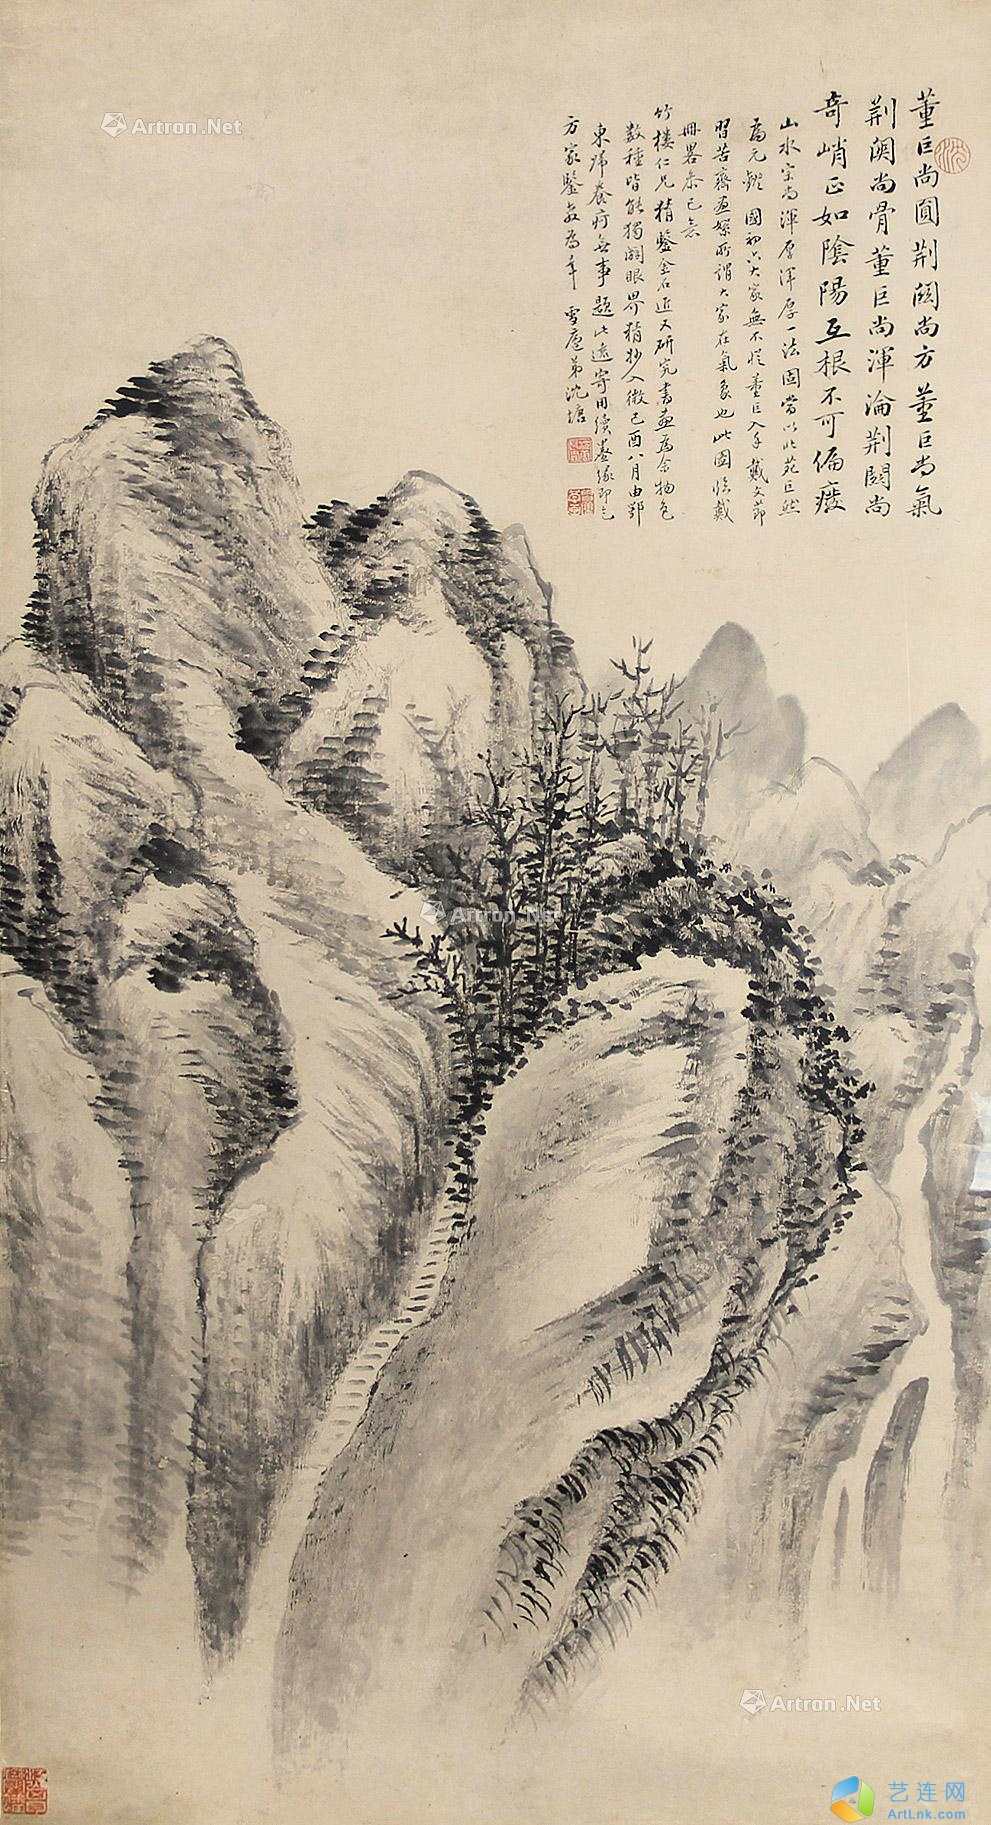 董巨尚圓荆關尚方董巨尚氣
荆関尚骨董巨尚渾淪荆関尚
奇峭正如陰陽互根不可偏廢
山水宗尚渾厚渾厚一法固當以北苑巨然
為元 國初六大家無不從董巨入手戴文節
習苦齋畫絮所謂大家在氣象也此圖臨戴
冊畧參己意
竹樓仁兄精鑒金石近又研究書畫為余物色
数種皆能獨闢眼界精妙入微己酉八月由鄂
東歸養疴無事題此遠寄用續墨緣即乞
方家鑒教為幸 雪廬弟沈塘
Artron.Net
Artron.Net
Artron.Net
艺连网
ArtLnk.com